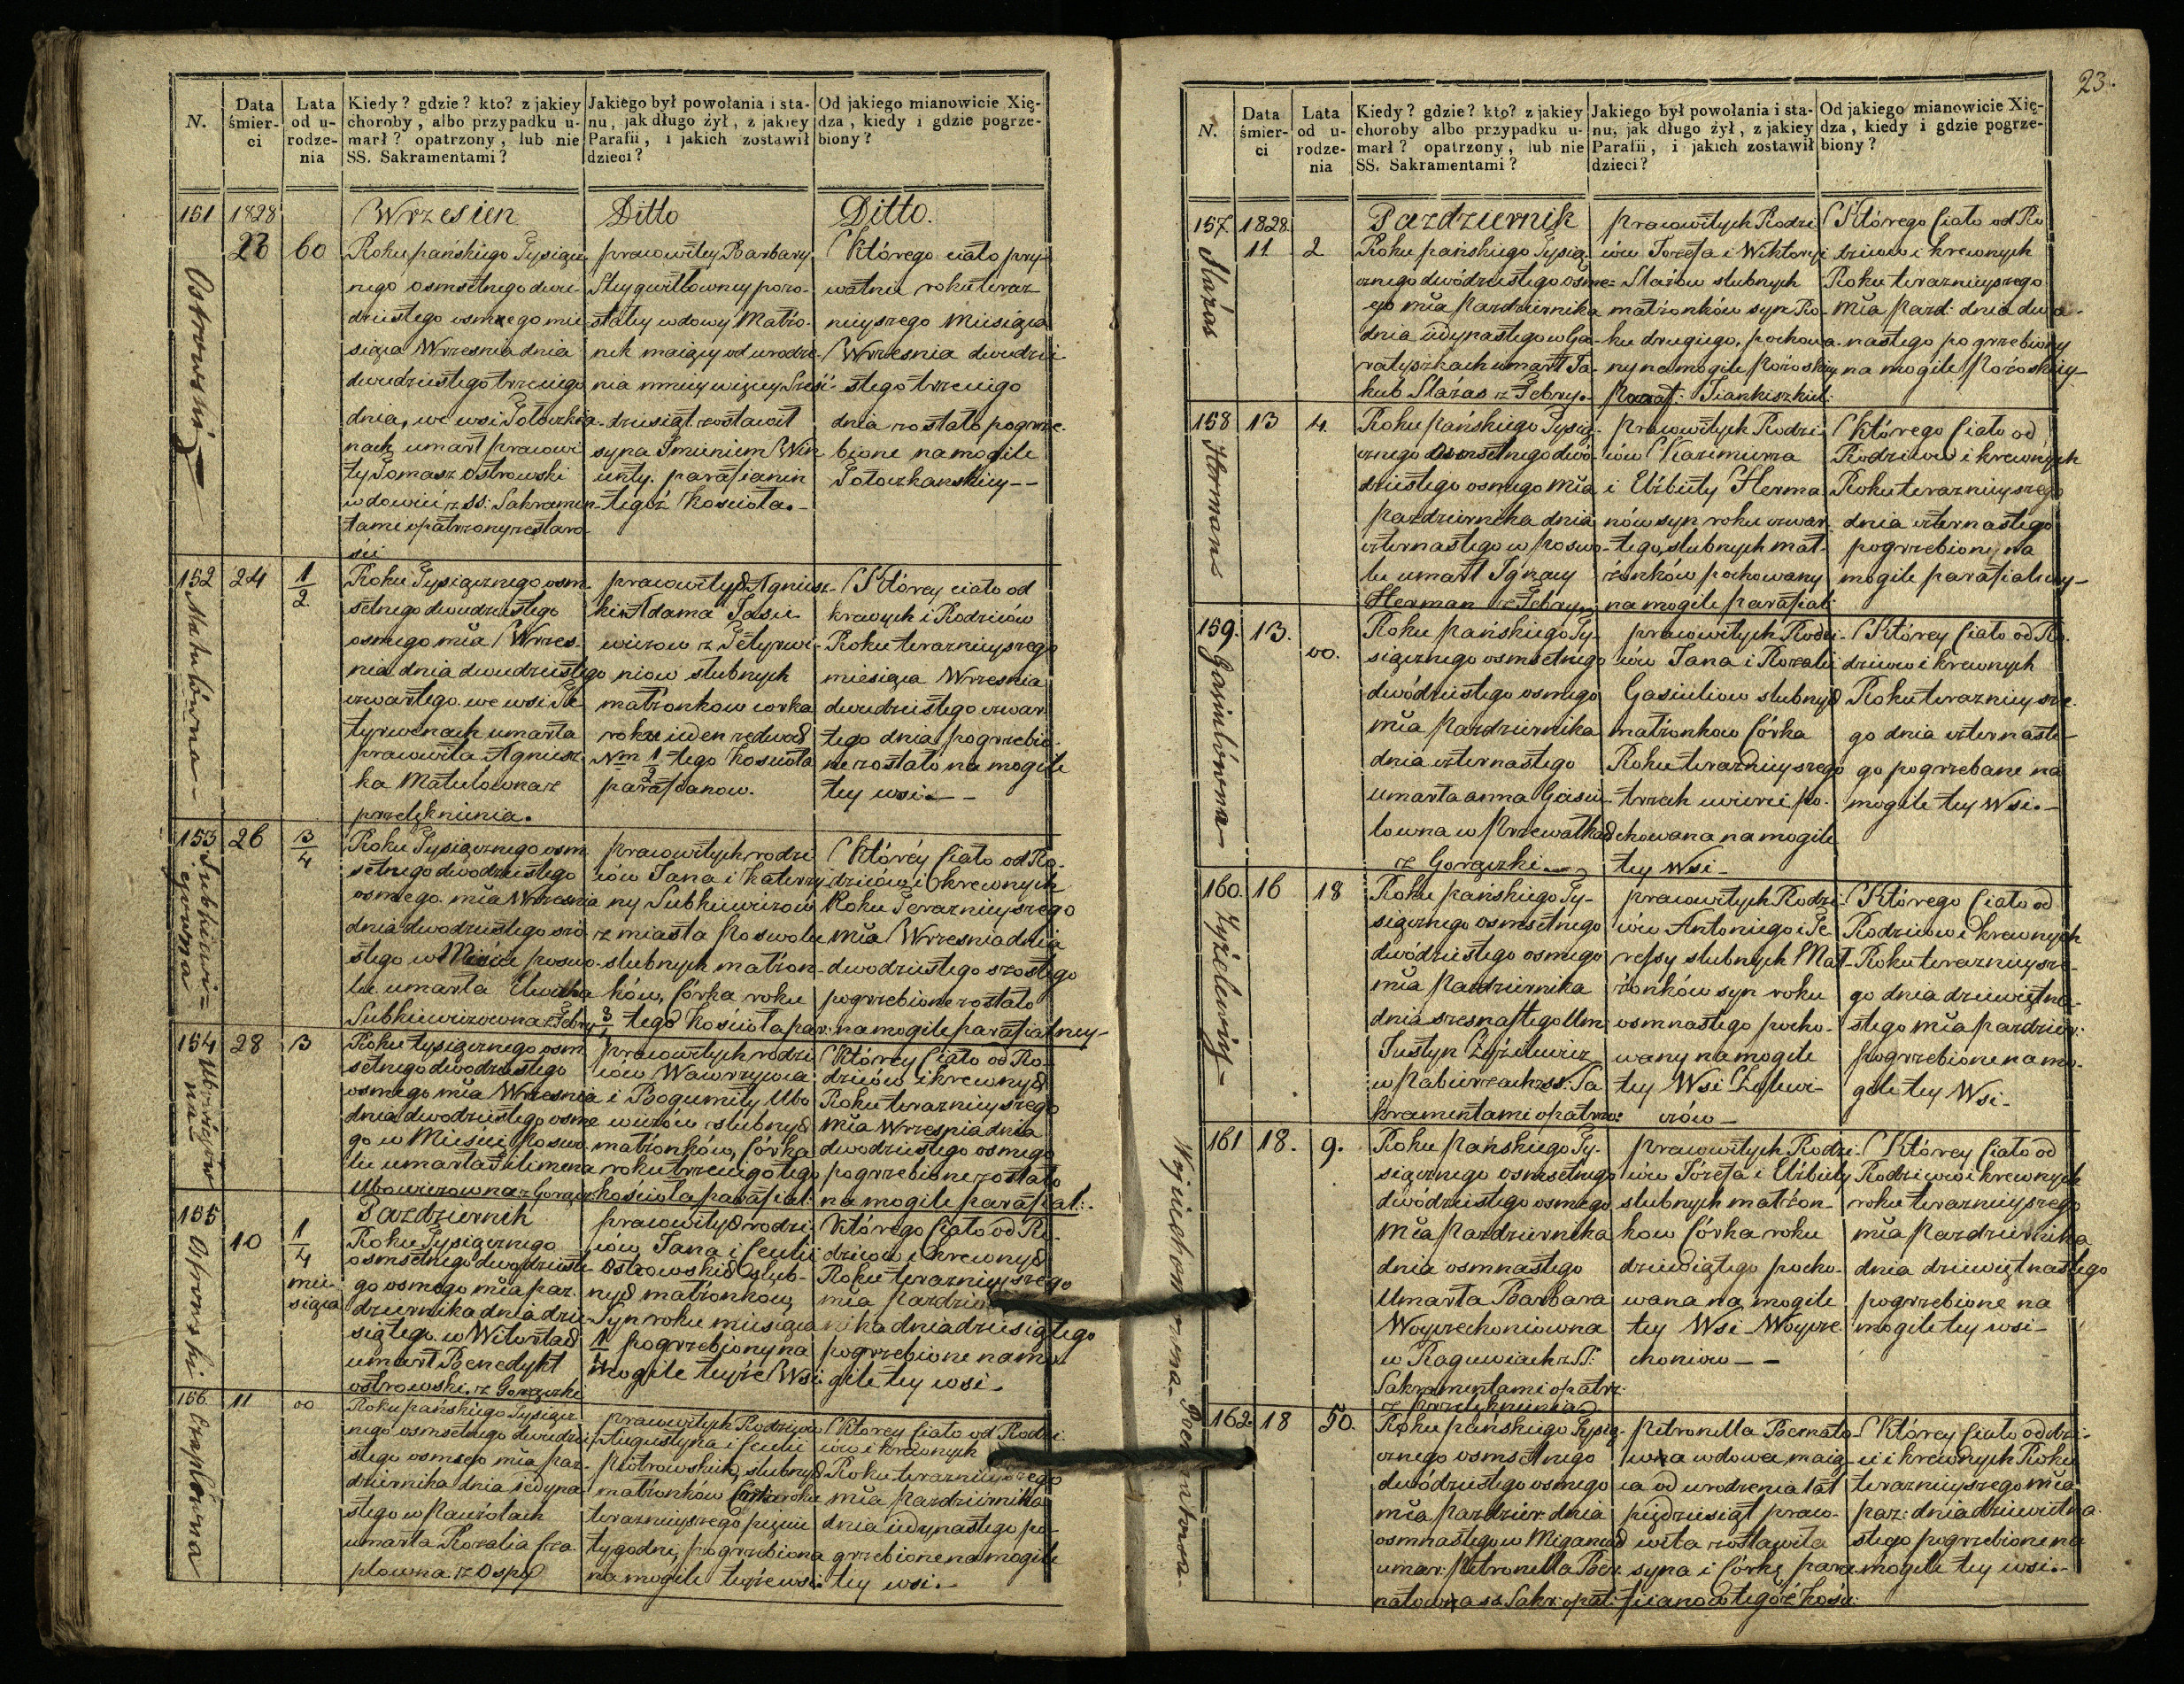 N.
Data śmier-ci
Lata od u-rodze-nia
Kiedy? gdzie? kto? z jakiey
choroby, albo przypadku u-
marł? opatrzony, lub nie
SS. Sakramentami?
Jakiego był powołania i sta-
nu, jak długo żył, z jakiey
Parafii, i jakich zostawił
dzieci?
Od jakiego mianowicie Xię-
dza, kiedy i gdzie pogrze-
biony?
151
1828
23
60
Ostrowski
Wrzesien
Roku pańskiego Tysiącz
nego osmsetnego dwu-
dziestego osmego mie-
siąca Wrzesnia dnia
dwudziestego trzeciego
dnia, we wsi Potoczka
nach umarł pracowi
ty Tomasz Ostrowski
wdowiec z SS: Sakramen
tami opatrzony ze staro
ści
Ditto
pracowitey Barbary
pozo-
stałey wdowy Małżo-
nek maiący od urodze-
nia mniey więcey Sześć-
dziesiąt zostawił
syna Imieniem Win
centy. parafianin
tegoż Kościoła.-
Ditto.
Którego ciało pry-
watnie roku teraz
nieyszego Miesiąca
Wrzesnia dwudzie-
stego trzeciego
dnia zostało pogrze-
bione na mogile
Potoczkanskiey--
152
24
1/2
Matulówna
Roku Tysiącznego osm
setnego dwudziestego
osmego mca Wrzes-
nia dnia dwudziestego
czwartego we wsi Pe
tyrwenach umarła
pracowita Agniesz
ka Matulowna z
przelęknienia.
pracowitych Agniesz-
ki Adama Jasie
wiczow z Petyrwi-
niow slubnych
małżonkow corka
tego Kosciola
parafianow.
Którey ciało od
krewnych i Rodziców
Roku terazniejszego
miesiąca Wrzesnia
dwudziestego czwar
tego dnia pogrzebio-
ne zostało na mogile
tey wsi.--
153
26
3/4
Subkiewi-
czowna
Roku Tysiącznego osm
setnego dwodziestego
osmego mca Wrzesnia
dnia dwodziestego szó
stego w Mieście poswo-
lu umarła
Subkiewiczowna z Febry
pracowitych rodzi
ców Jana i Katerzy
ny Subkiewiczow
z miasta Poswolu
slubnych małżon-
ków, Córka roku
3/4 tegoż Kościoła par:
Którey Ciało od Ro-
dziców i krewnych
Roku Terazniejszego
mca Wrzesnia dnia
dwodziestego szostego
pogrzebione zostało
na mogile parafialney-
154
28
3
Ubowiczow
na
Roku tysiącznego osm
setnego dwodziestego
osmego mca Wrzesnia
dnia dwodziestego osme
go w Mieście Poswo
lu umarła Filimena
Ubowiczowna z Gorącz
pracowitych rodzi
ców Wawrzynca
i Bogumiły Ubo
wiczów slubnych
małżonków, Córka
roku trzeciego tego
kościoła parafial.
Którey Ciało od Ro-
dziców i krewnych
Roku terazniejszego
mca Wrzesnia dnia
dwodziestego osmego
pogrzebione zostało
na mogile parafial:-
155
10
1/4
mie-
siąca
Ostrowski
Pazdziernik
Roku Tysiącznego
osmsetnego dwodzieste
go osmego mca paz
dziernika dnia dzie
siątego w Witortach
umarł Benedykt
ostrowski z Gorączki
pracowitych rodzi
ców Jana i Cecilii
Ostrowskich slub-
nych małżonkow,
Syn roku miesiąca
1/4 pogrzebiony na
mogile teyże Wsi
Którego Ciało od Ro-
dzicow i krewnych
Roku terazniejszego
mca Pazdzier
nika dnia dziesiątego
pogrzebione na mo
gile tey wsi.
156
11
00
Czaplowna
Roku pańskiego Tysiącz
nego osmsetnego dwudzie
stego osmego mca paz-
dziernika dnia iedyna
stego w Pawżolach
umarła Rozalia Cza
plowna z Ospy
pracowitych Rodziców
Augustyna i Cecilii
Piotrowskich slubnych
małżonkow Corka roku
terazniejszego pięciu
tygodni, pogrzebiona
na mogile teyże wsi
Ktorey Ciało od Rodzi
ców i krewnych
Roku terazniejszego
mca Pazdziernika
dnia iedynastego po-
grzebione na mogile
tey wsi.-
23.
N.
Data śmier-ci
Lata od u-rodze-nia
Kiedy? gdzie? kto? z jakiey
choroby albo przypadku u-
marł? opatrzony, lub nie
SS. Sakramentami?
Jakiego był powołania i sta-
nu, jak długo żył, z jakiey
Parafii, i jakich zostawił
dzieci?
Od jakiego mianowicie Xię-
dza, kiedy i gdzie pogrze-
biony?
157
1828
11
2
Stażas
Pazdziernik
Roku pańskiego Tysią
cznego dwódziestego osme-
go mca Pazdziernika
dnia iedynastego w Ga-
ratyszkach umarł Ja-
kub Stażas z Febry.
pracowitych Rodzi
ców Jozefa i Wiktoryi
Stażow slubnych
małżonków syn Ro-
ku drugiego, pochowa-
ny na mogile
Paraf:
Którego Ciało od Ro
dzicow i krewnych
Roku terazniejszego
Mca Pazd: dnia dwa-
nastego pogrzebiony
na mogile
158
13
4.
Hermans
Roku Pańskiego Tysią-
cznego osmsetnego dwó-
dziestego osmego Mca
Pazdziernika dnia
czternastego w Poswo-
lu umarł Ignacy
Herman z Febry
Pracowitych Rodzi
ców Kazimierza
i Elżbiety Herma
nów syn roku czwar
tego, slubnych mał-
żonków pochowany
na mogile Parafial:
Którego Ciało od
Rodziców i krewnych
Roku terazniejszego
dnia czternastego
pogrzebiony na
mogile parafialney-
159.
13.
00.
Gasiulówna
Roku Pańskiego Ty-
siącznego osmsetnego
dwódziestego osmego
mca Pazdziernika
dnia czternastego
umarła anna Gasiu-
lowna w Przewałkach
z Gorączki
pracowitych Rodzi-
ców Jana i Rozalii
Gasiulow slubnych
małżonkow Córka
Roku terazniejszego
trzech ćwierci po-
chowana na mogile
tey Wsi-
Którey Ciało od Ro-
dzicow i krewnych
Roku terazniejsze-
go dnia czternaste-
go pogrzebane na
mogile tey Wsi.-
160.
16
18
Żyzelewicz-
Roku pańskiego Ty-
siącznego osmsetnego
dwódziestego osmego
mca Pazdziernika
dnia szesnastego Um:
Justyn Żyzelewicz
w Pabierzach z SS. Sa
kramentami opatrzo:
pracowitych Rodzi-
ców Antoniego i Te
ressy slubnych Mał-
żonków syn roku
osmnastego pocho-
wany na mogile
tey Wsi
czów-
Którego Ciało od
Rodziców i krewnych
Roku terazniejsze-
go dnia dziewiętna-
stego mca pazdzier:
pogrzebione na mo-
gile tey Wsi-
161
18.
9.
Woyciechoniowna-
Roku Pańskiego Ty-
siącznego osmsetnego
dwódziestego osmego
Mca Pazdziernika
dnia osmnastego
Umarła Barbara
Woyciechoniowna
w Raguwiach z SS:
Sakramentami opatrz:
z przelęknienia
Pracowitych Rodzi-
ców Józefa i Elżbiety
slubnych małżon-
kow Córka roku
dziewiątego pocho-
wana na mogile
tey Wsi- Woycie
choniow--
Którey Ciało od
Rodziców i krewnych
roku terazniejszego
mca Pazdziernika
dnia dziewiętnastego
pogrzebione na
mogile tey wsi-
162.
18
50.
Roku pańskiego Tysią-
cznego osmsetnego
dwódziestego osmego
mca Pazdzier: dnia
osmnastego w Miganach
umar: Petronella Ber-
natowna SS Sakr: opat:
Petronella Bernato-
wna wdowa maią-
ca od urodzenia lat
pięćdziesiąt praco-
wita zostawiła
syna i Córkę para
fianow tegóż Kość:
Którey Ciało od dzi-
eci i krewnych Roku
terazniejszego Mca
paz: dnia dziewiętna
stego pogrzebione na
mogile tey wsi.-